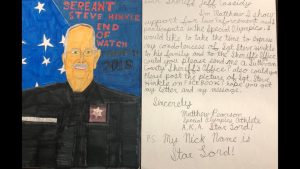 SEREANT
STEVE HINKLE
END OF
WATCH
2018
Dear Sheriff Jeff Cassidy
I'm Matthew I show
support for law enforcement and
participants in the Special Olympics. I
would like to take the time to express
my condolences of Sgt Steve Hinkle
to his family and to the Sheriff's Office
could you please send me a Sullivan
County Sheriff's Office? Also could you
please post the picture of Sgt Steve
Hinkle on FACEBOOK? hope you got
my letter and my message!
Sincerely
Matthew Pearson
Special Olympics Athlete
A.K.A. Star Lord!
P.S. My Nick Name Is
Star Lord!